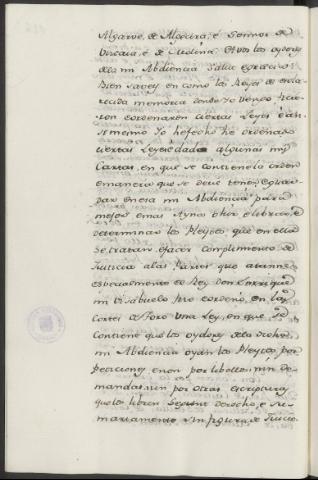 Algarve, de Algecira, é Sennor de
Vizcaia, é de Molina. A vos los oydores
dela mi Abdiencia Salud é gracia:
Bien savedes en como los Reyes de escla-
recida memoria donde Yo vengo ficie-
ron é ordenaron ciertas Leyes é así
mesmo Yo hé fecho hé ordenado
ciertas Leyes é dadas algunas mis
Cartas, en que se contiene la orden
é manera que se deve tener, é guar-
dar en esa mi Abdiencia para
mejor é mas ayna é librar, é
determinar los Pleytos que en ella
se tratan é facer complimiento de
Justicia alas Partes que atanne
especialmente el Rey Don Enrrique
mi Visabuelo fizo é ordenó en las
Cortes de Toro una Ley, en que se
contiene que los oydores dela dicha
mi Abdiencia oyan los Pleytos por
Peticiones é non por libellos, nin de-
mandas, nin por otras escripturas,
que los libren segunt derecho, é su-
mariamente é sin figura de Juicio